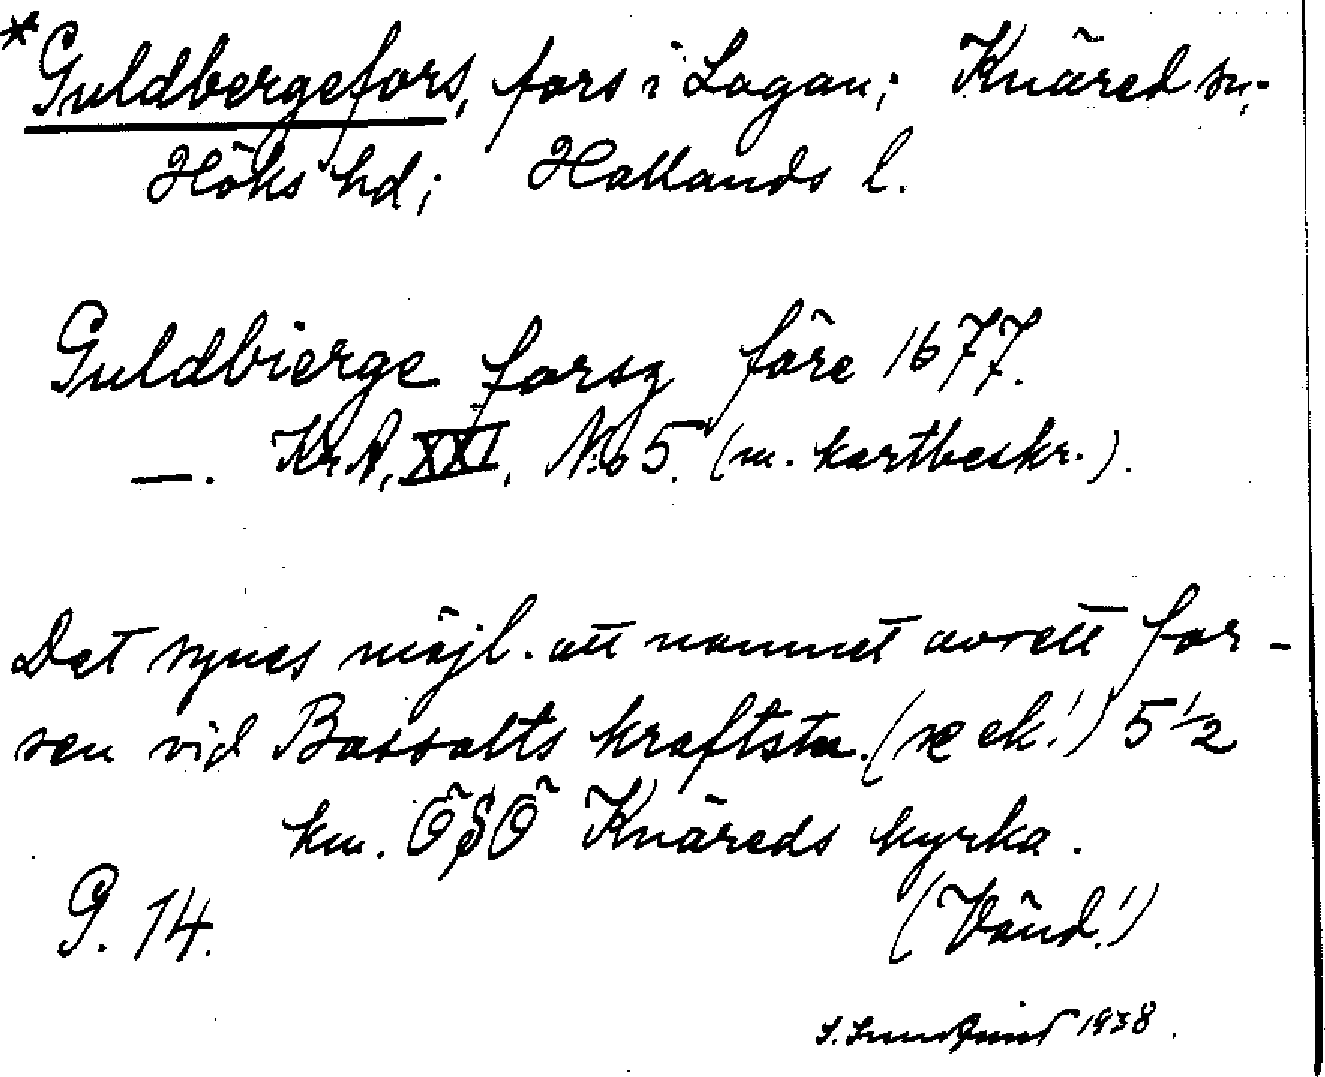 *Guldbergefors, fors i Lagan; Knäred sn;
Höks hd; Hallands l.
Guldbierge forsz före 1677.
—. KrA, XXI, No 5. (m. kartbeskr.).
Det synes möjl. att namnet avsett for-
sen vid Bassalts kraftstn. (se ek!) 5 1/2
km. ÖSÖ Knäreds kyrka.
G. 14.
(Vänd!)
1938.